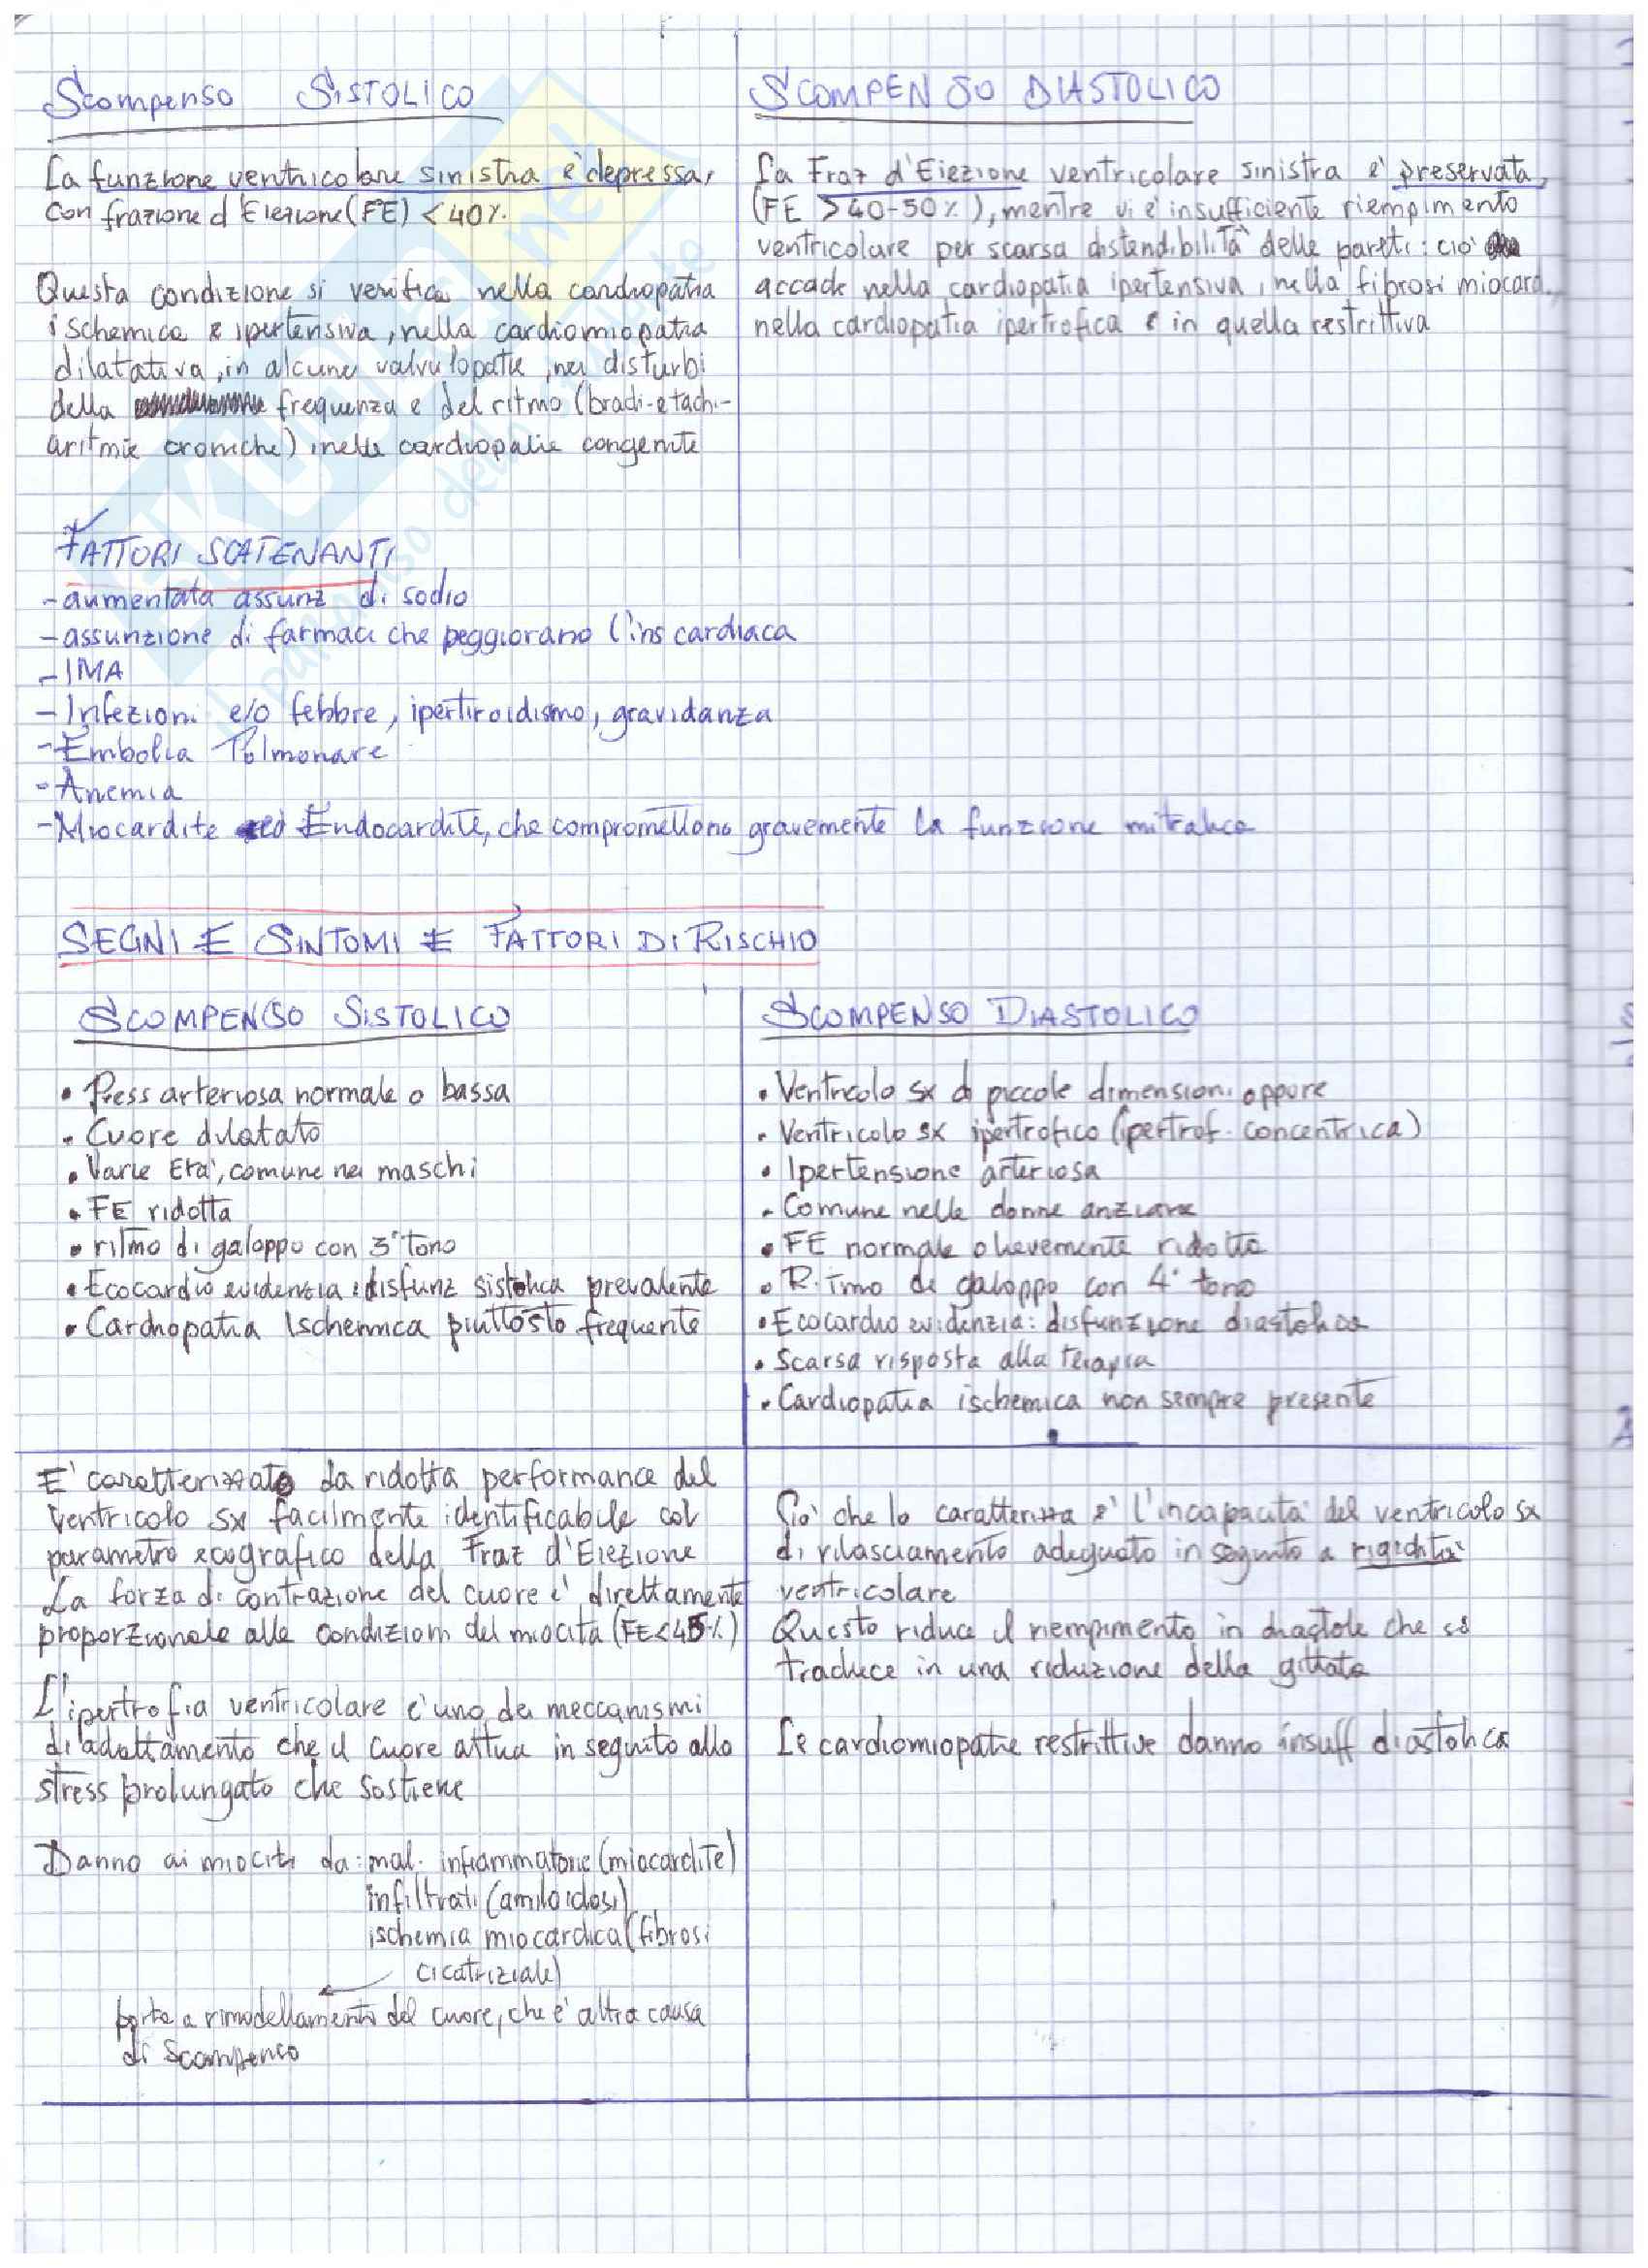 Scompenso SISTOLICO
La funzione ventricolare sinistra è depressa,
con frazione d'Eiezione (FE) < 40%.
Questa condizione si verifica nella cardiopatia
ischemica e ipertensiva, nella cardiomiopatia
dilatativa, in alcune valvulopatie, nei disturbi
della frequenza e del ritmo (bradi- e tachi-
aritmie croniche), nelle cardiopatie congenite
SCOMPENSO DIASTOLICO
La Fraz d'Eiezione ventricolare sinistra è preservata,
(FE >40-50%), mentre vi è insufficiente riempimento
ventricolare per scarsa distendibilità delle pareti: ciò
accade nella cardiopatia ipertensiva, nella fibrosi miocard.
nella cardiopatia ipertrofica e in quella restrittiva
FATTORI SCATENANTI
- aumentata assunz di sodio
- assunzione di farmaci che peggiorano l'ins cardiaca
- IMA
- Infezioni e/o febbre, ipertiroidismo, gravidanza
- Embolia Polmonare
- Anemia
- Miocardite ed Endocardite, che compromettono gravemente la funzione mitralica
SEGNI E SINTOMI E FATTORI DI RISCHIO
SCOMPENSO SISTOLICO
• Press arteriosa normale o bassa
• Cuore dilatato
• Varie Età, comune nei maschi
• FE ridotta
• ritmo di galoppo con 3° tono
• Ecocardio evidenzia: disfunz sistolica prevalente
• Cardiopatia Ischemica piuttosto frequente
SCOMPENSO DIASTOLICO
• Ventricolo sx di piccole dimensioni oppure
• Ventricolo sx ipertrofico (ipertrof. concentrica)
• Ipertensione arteriosa
• Comune nelle donne anziane
• FE normale o lievemente ridotta
• Ritmo di galoppo con 4° tono
• Ecocardio evidenzia: disfunzione diastolica
• Scarsa risposta alla terapia
• Cardiopatia ischemica non sempre presente
E' caratterizzato da ridotta performance del
ventricolo sx facilmente identificabile col
parametro ecografico della Fraz d'Eiezione
La forza di contrazione del cuore è direttamente
proporzionale alle condizioni del miocita (FE<45%)
L'ipertrofia ventricolare è uno dei meccanismi
di adattamento che il cuore attua in seguito allo
stress prolungato che sostiene
Danno ai miociti da: mal. infiammatorie (miocardite)
infiltrati (amiloidosi)
ischemia miocardica (fibrosi
cicatriziale)
porta a rimodellamento del cuore, che è altra causa
di Scompenso
Ciò che lo caratterizza è l'incapacità del ventricolo sx
di rilasciamento adeguato in seguito a rigidità
ventricolare
Questo riduce il riempimento in diastole che si
traduce in una riduzione della gittata
Le cardiomiopatie restrittive danno insuff diastolica